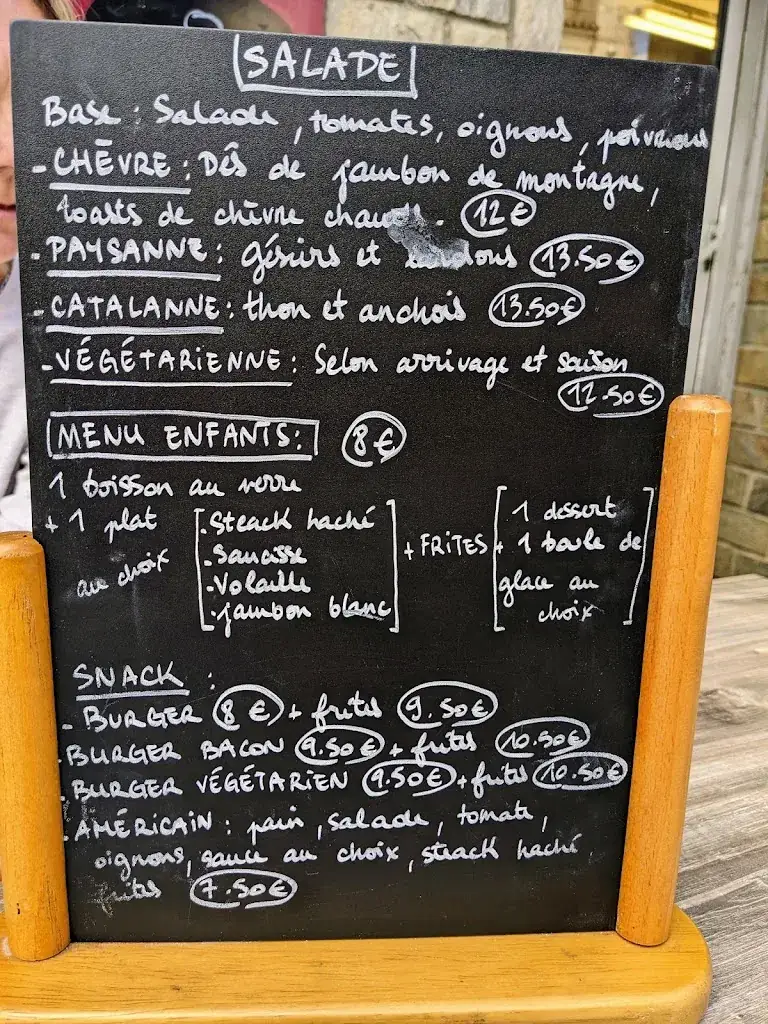 SALADE
Base : Salade, tomates, oignons, poivrons
- CHÈVRE : Dés de jambon de montagne,
toasts de chèvre chauds. 12€
- PAYSANNE : gésiers et lardons 13.50€
- CATALANNE : thon et anchois 13.50€
- VÉGÉTARIENNE : Selon arrivage et saison
12.50€
MENU ENFANTS : 8€
1 boisson au verre
+ 1 plat au choix
. Steack haché
. Saucisse
. Volaille
. jambon blanc
+ FRITES +
1 dessert
1 boule de
glace au
choix
SNACK :
- BURGER 8€ + frites 9.50€
. BURGER BACON 9.50€ + frites 10.50€
. BURGER VÉGÉTARIEN 9.50€ + frites 10.50€
. AMÉRICAIN : pain, salade, tomate,
oignons, sauce au choix, steack haché,
frites 7.50€